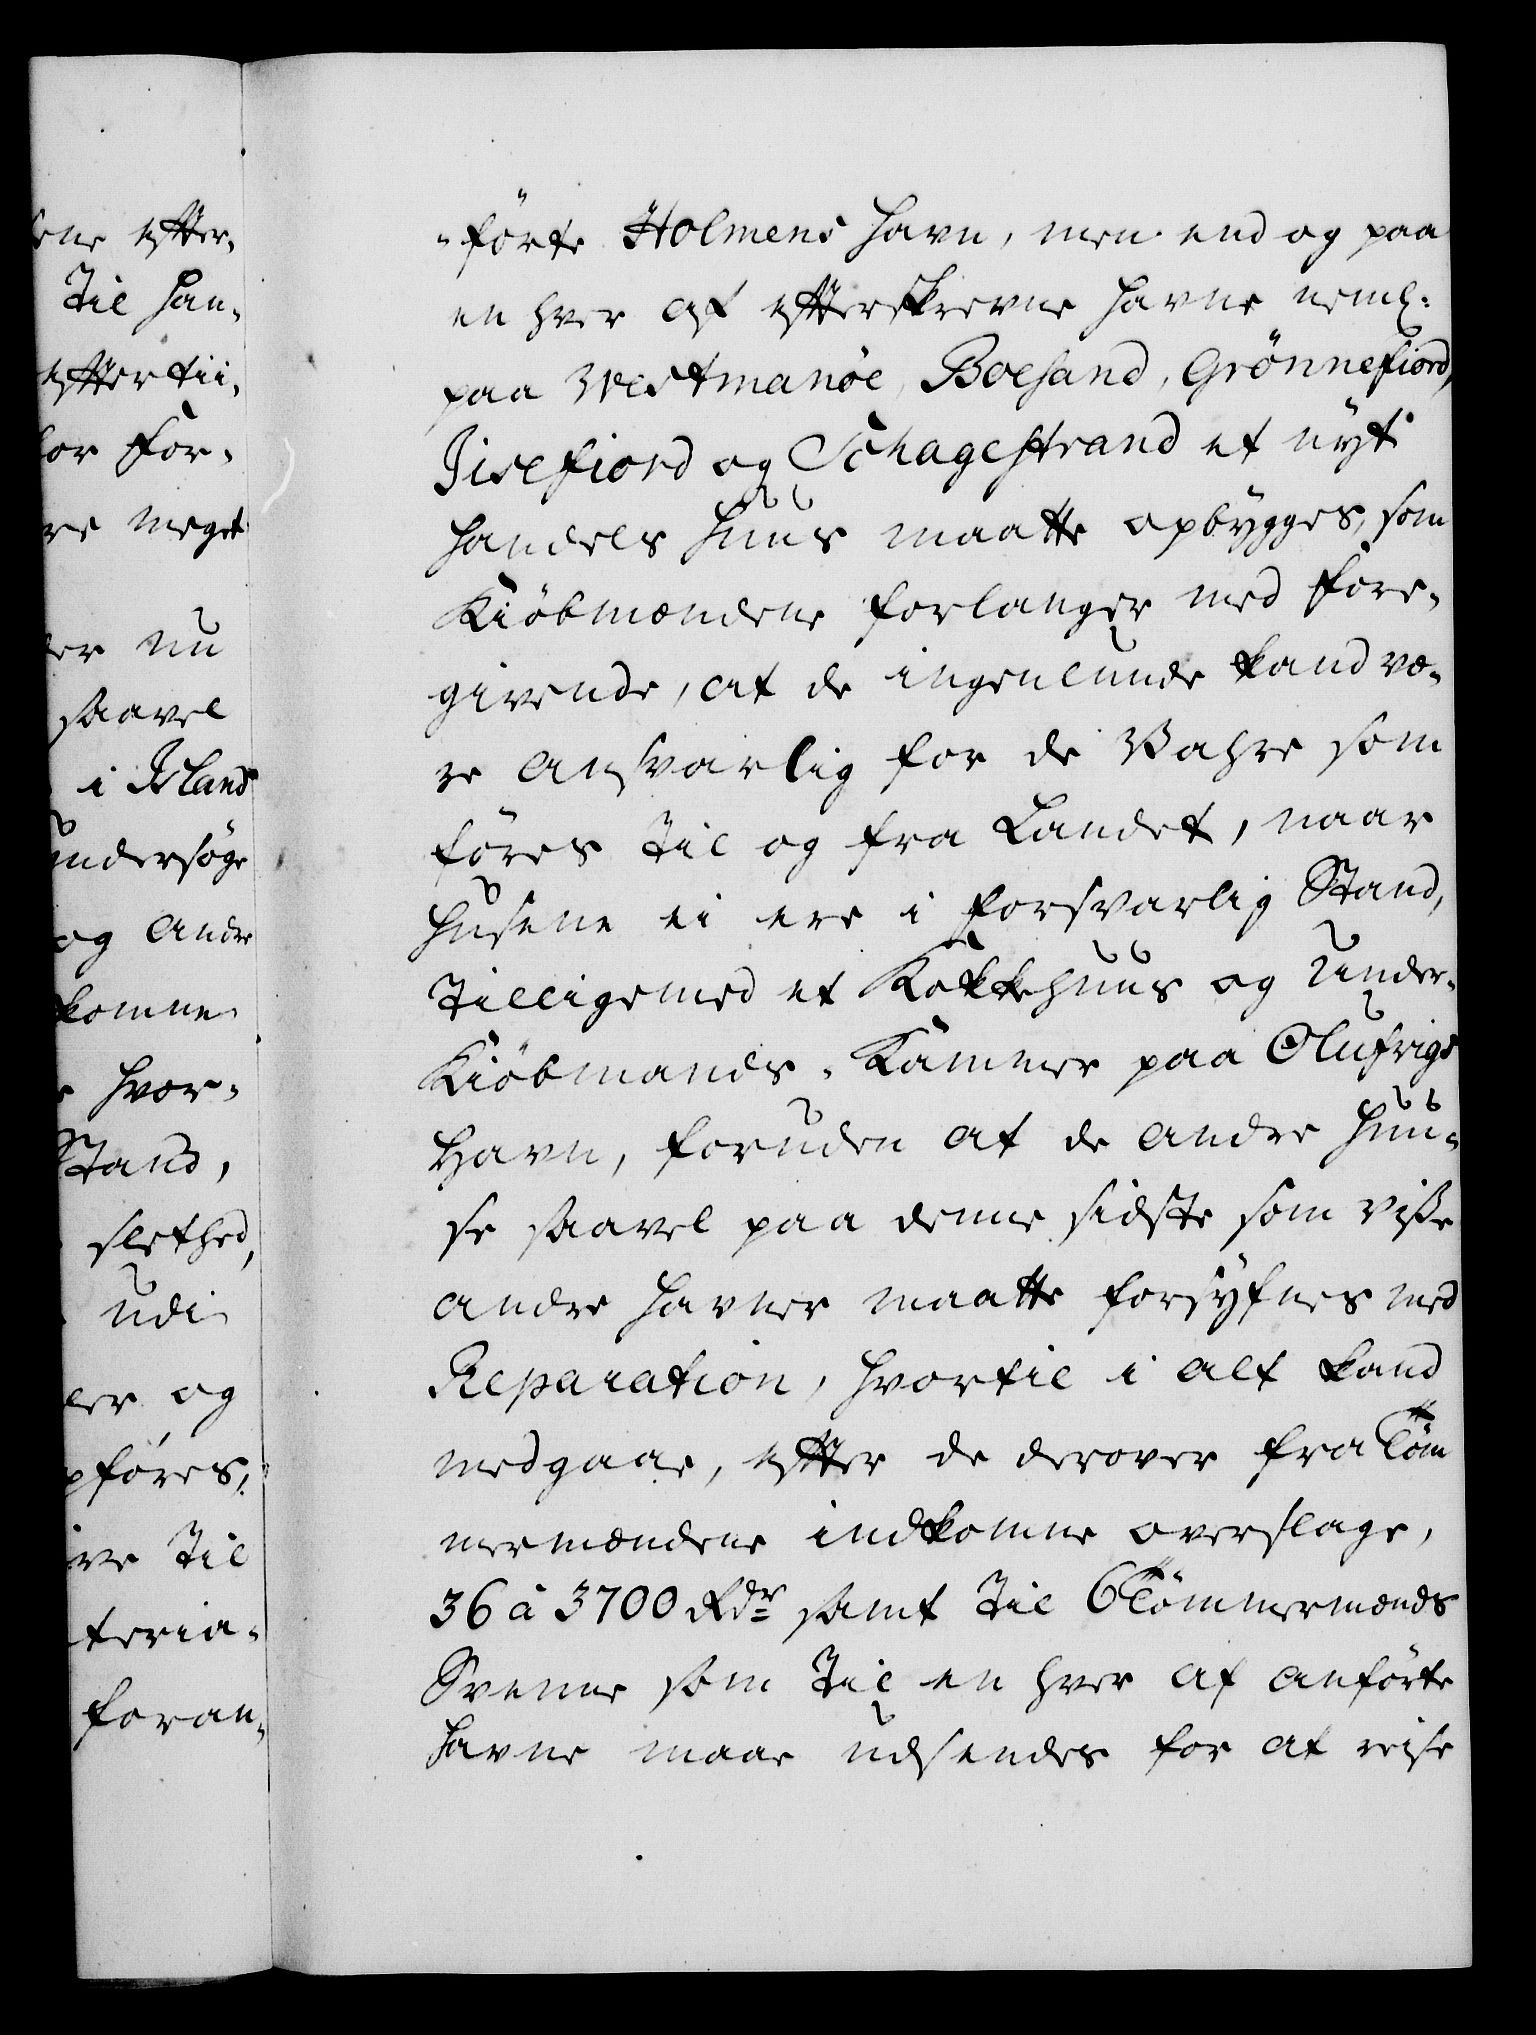 ene efter-
Til Han-
eftertii-
lor for-
re meget
er nu
saavel
i Island
undersøge
og andre
komne
hvor-
Stand,
slethed,
udi
ler og
pføres,
ive Til
teria-
foran-
-førte Holmens Havn, men end og paa
en hver af efterskrevne Havne neml:
paa Westmanöe, Boesand, Grönnefiord,
Jisefiord og Schagestrand et nyt
Handels Huus maatte opbygges, som
Kiöbmændene forlanger med fore-
givende, at de ingenlunde kand væ-
re ansvarlig for de Vahre som
föres Til og fra Landet, naar
Husene ei ere i forsvarlig Stand,
Tilligemed et Kokkehuus og Under-
Kiöbmands-Kammer paa Olufvigs
Havn, foruden at de andre Huu-
se saavel paa denne sidste som visse
andre Havner maatte forsyfnes med
Reparation, hvortil i alt kand
medgaae, efter de derover fra Töm
mermændene indkomne overslage,
36 à 3700 Rdr samt Til 6 Tömmermænds
Svenne som Til en hver af anförte
Havne maae udsendes for at reise